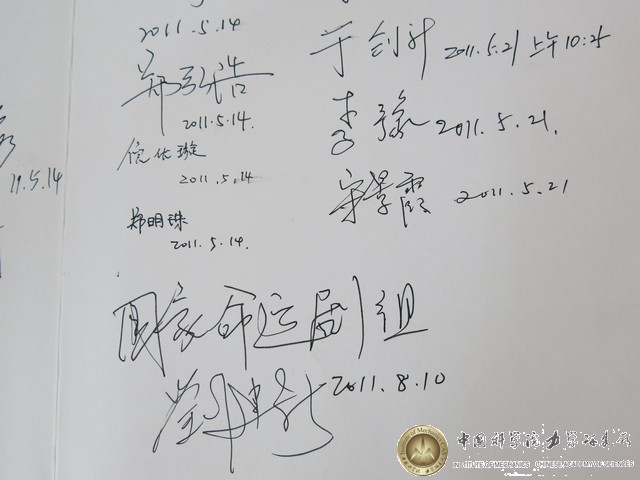 2011.5.14
郑弘浩
2011.5.14.
倪依璇
2011.5.14
郑明珠
2011.5.14.
11.5.14
于剑升 2011.5.21 上午10:25
李豫 2011.5.21.
宋景霞 2011.5.21
国家命运剧组
2011.8.10
中国科学院力学研究所
INSTITUTE OF MECHANICS CHINESE ACADEMY OF SCIENCES